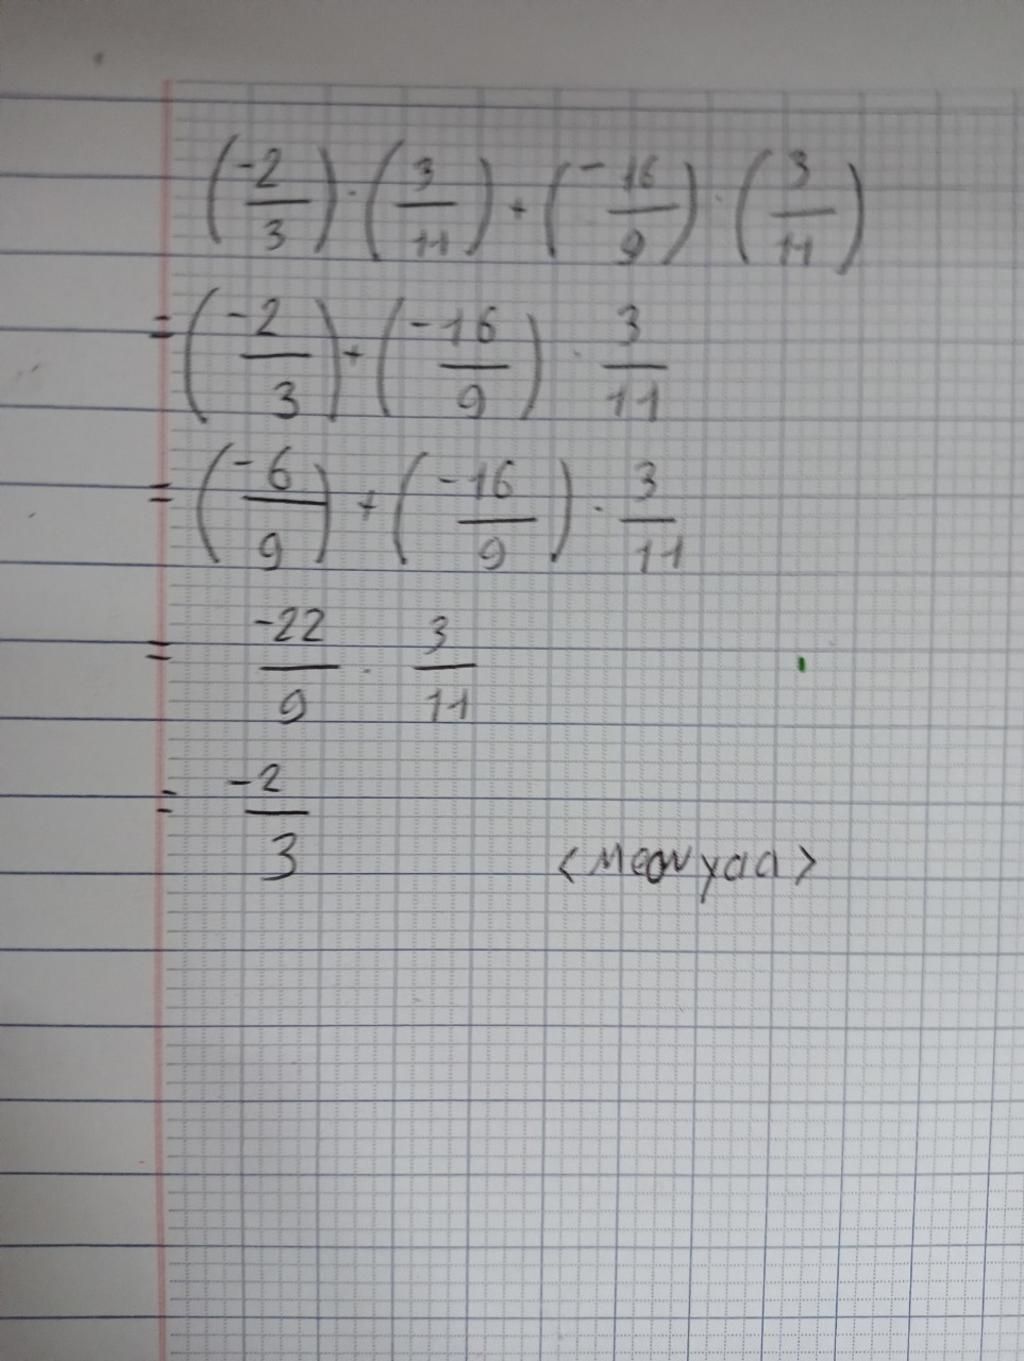 (-2/3) · (3/11) + (-16/9) · (3/11)
= (-2/3) + (-16/9) · 3/11
= (-6/9) + (-16/9) · 3/11
= -22/9 · 3/11
= -2/3
<Meowyaa>